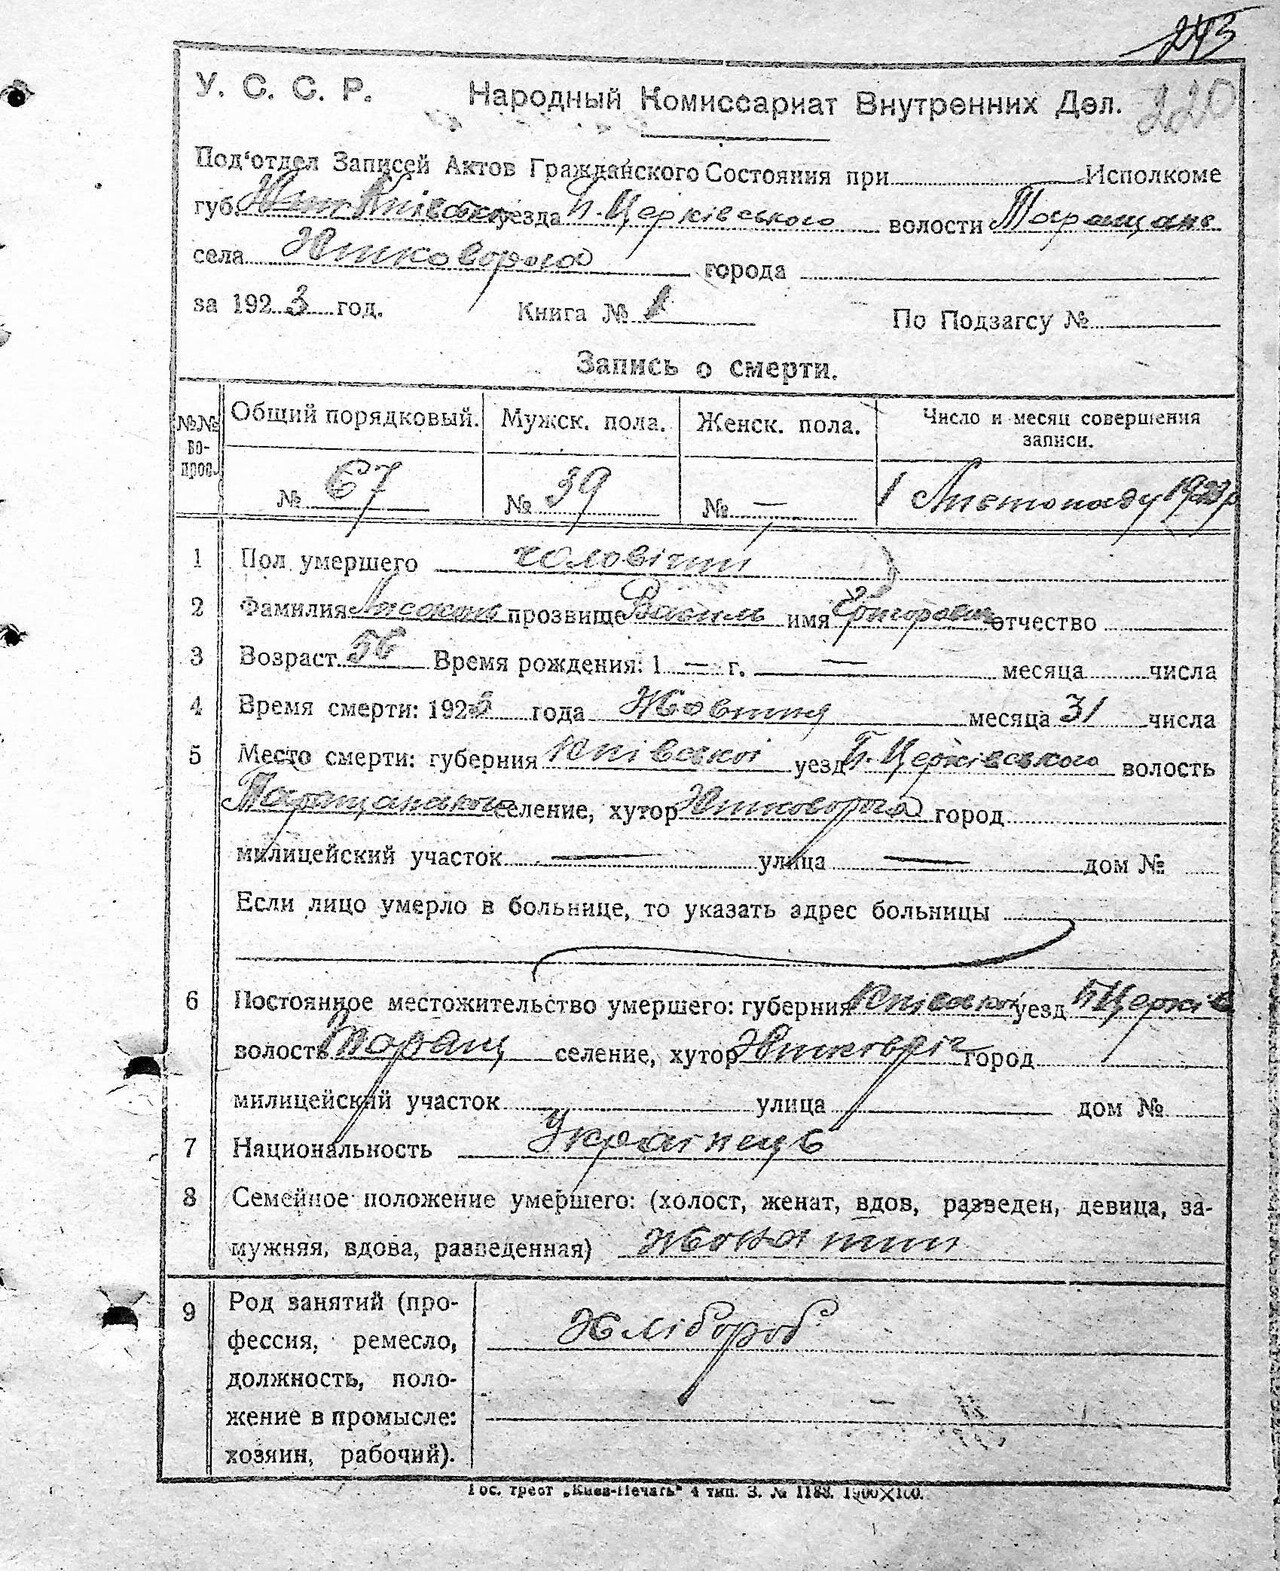 243
220
У. С. С. Р. Народный Комиссариат Внутренних Дел.
Под'отдел Записей Актов Гражданского Состояния при Исполкоме
губ. Київськ уезда Б. Церківського волости Таращанс
села города
за 1923 год. Книга № 1 По Подзагсу №
Запись о смерти.
№№ вопрос. Общий порядковый. Мужск. пола. Женск. пола. Число и месяц совершения записи.
№ 67 № 39 № — 1 Листопаду 1923 р
1 Пол умершего чоловічий
2 Фамилия прозвище Василь имя Григорович отчество
3 Возраст 56 Время рождения: 1 — г. — месяца числа
4 Время смерти: 1923 года Жовтня месяца 31 числа
5 Место смерти: губерния Київської уезд Б. Церківського волость
Таращанського селение, хутор город
милицейский участок — улица — дом №
Если лицо умерло в больнице, то указать адрес больницы
6 Постоянное местожительство умершего: губерния Київської уезд Б Церків
волость Таращ селение, хутор город
милицейский участок улица дом №
7 Национальность Українець
8 Семейное положение умершего: (холост, женат, вдов, разведен, девица, за-
мужняя, вдова, разведенная) жонатий
9 Род занятий (про-
фессия, ремесло, Хлібороб
должность, поло-
жение в промысле:
хозяин, рабочий).
Гос. трест „Киев-Печать" 4 тип. З. № 1188. 1900×100.